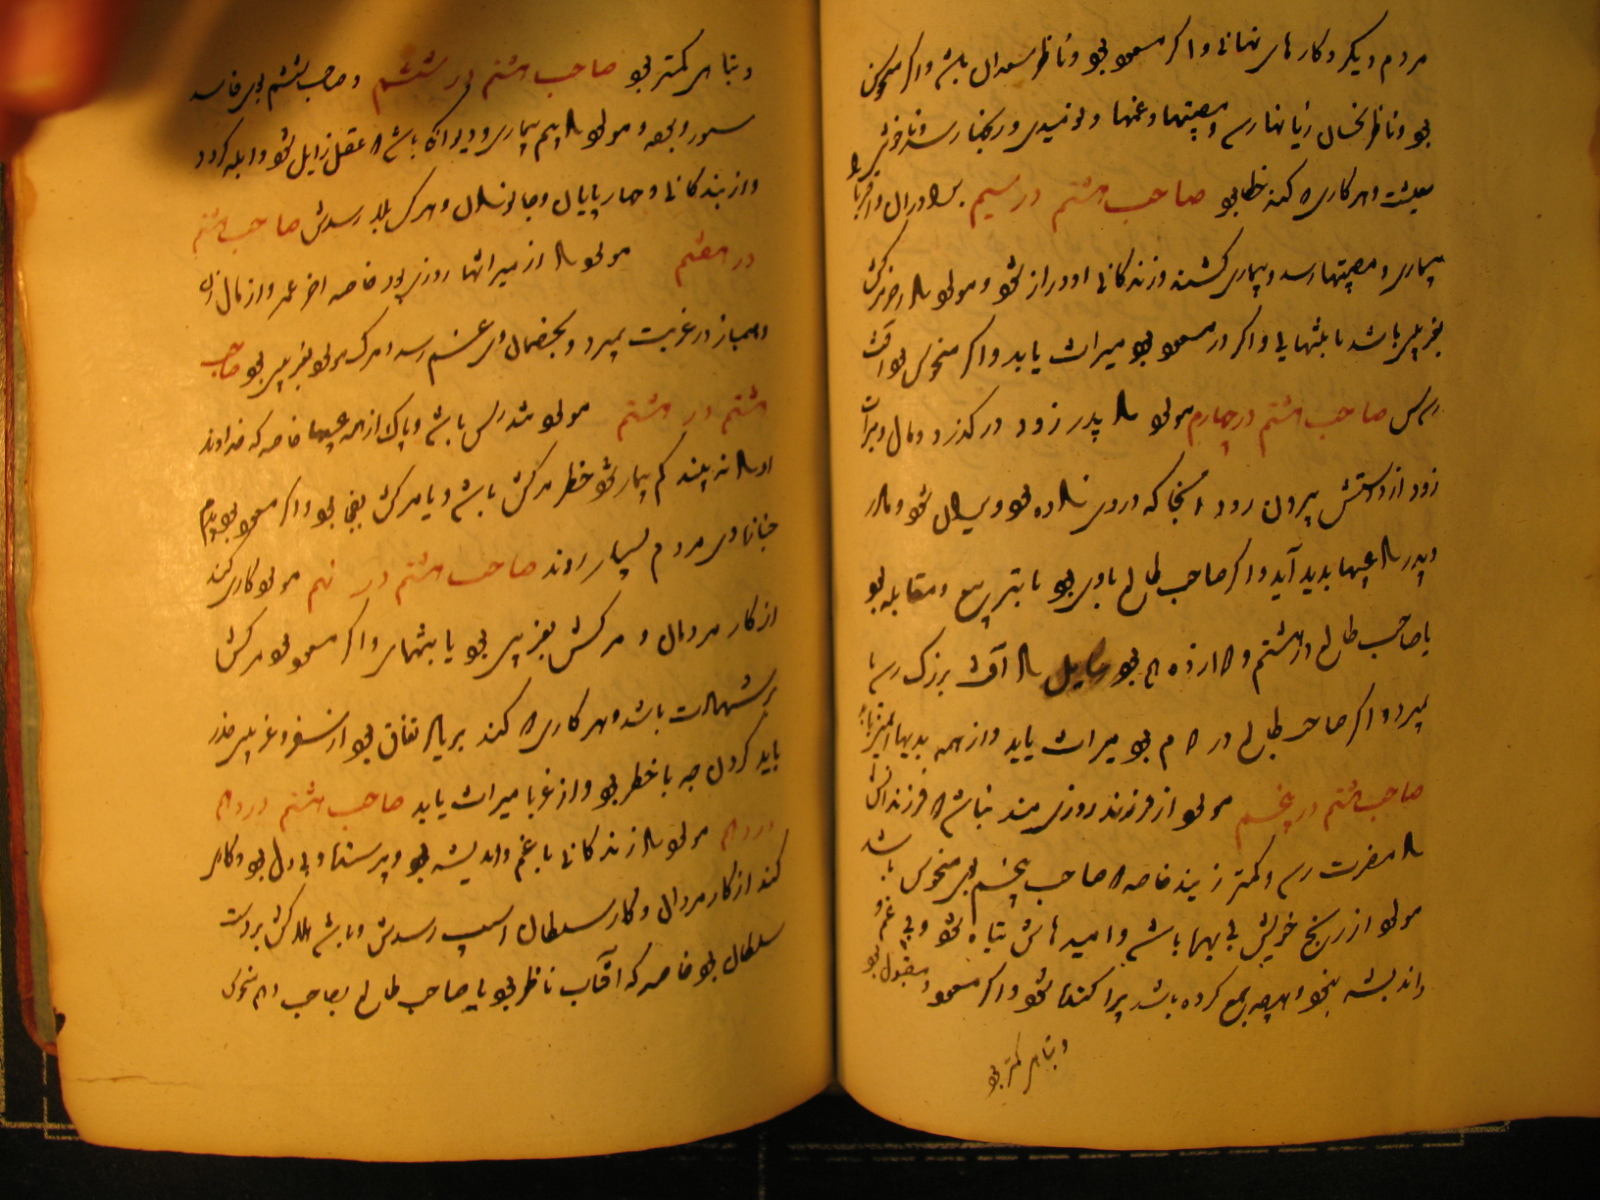 مردم دیکر و کارهای نهانی و اکر مسعود بود و ناظر سعدان باشد و اکر منحوس
بود و ناظر نحسان زیانها رسد و مصیبتها و غمها و نومیدی و
معیشت و هر کاری که کند خطا بود صاحب هشتم در سیم برادران و اقربا
بیماری و مصیبتها رسد و بیماری کشند و زندکانی او دراز شود و مولود را
بغریبی باشد یا بتنهایی و اکر در مسعود بود میراث یابد و اکر منحوس بود آفت
رسدش صاحب هشتم در چهارم مولود را پدر زود در کذرد و مال و میراث
زود از دستش بیرون رود و آنجا که در وی زاده بود ویران شود و مادر
و پدر را عیبها پدید آید و اکر صاحب طالع با وی بود یا بتربیع و مقابله بود
یا صاحب طالع در هشتم بود را آفت بزرک رسد یا
بمیرد و اکر صاحب طالع در بود میراث یابد و از همه بدیها ایمن باشد
صاحب هشتم در پنجم مولود از فرزند روزی مند نباشد و فرزندانش
را مضرت رسد و کمتر زیند خاصه که صاحب پنجم منحوس باشد
مولود از رنج خویش بی بهره باشد و امیدهاش تباه شود و بی غم و
اندیشه نبود و هرچه جمع کرده باشد پراکنده شود و اکر مسعود و مقبول بود
و تباهی کمتر بود
و تباهی کمتر بود صاحب هشتم در ششم و صاحب ششم
مولود را بیم بیماری و دیوانکی باشد و عقل زایل شود و ابله کردد
و از بندکانی و چهارپایان و جانوران و مرک بلا رسدش صاحب هشتم
در هفتم مولود را از میراثها روزی بود خاصه آخر عمر و از مال زن
و همباز در غربت بمیرد و بخصمان وی غم رسد و مرک مولود بغریبی بود صاحب
هشتم در هشتم مولود تندرست باشد و پاک از همه عیبها خاصه که خداوند
او را نه بیند کم بیمار شود خطر مرکش باشد و یا مرکش بغی بود و اکر مسعود بود
جنازه وی مردم بسیار روند صاحب هشتم در نهم مولود کاری کند
از کار مردمان و مرکش بغریبی بود یا بتنهایی و اکر مسعود بود مرکش
بر شهادت باشد و هر کاری که کند بریا و نفاق بود از سفر و غریبی حذر
باید کردن چه با خطر بود و از غربا میراث یابد صاحب هشتم در دهم
در دهم مولود را زندکانی با غم و اندیشه بود و بی دل بود و کار
کند از کار مردان و کار سلطان اسیب رسدش و باشد هلاکش بر دست
سلطان بود خاصه که آفتاب ناظر بود یا صاحب طالع بصاحب دهم